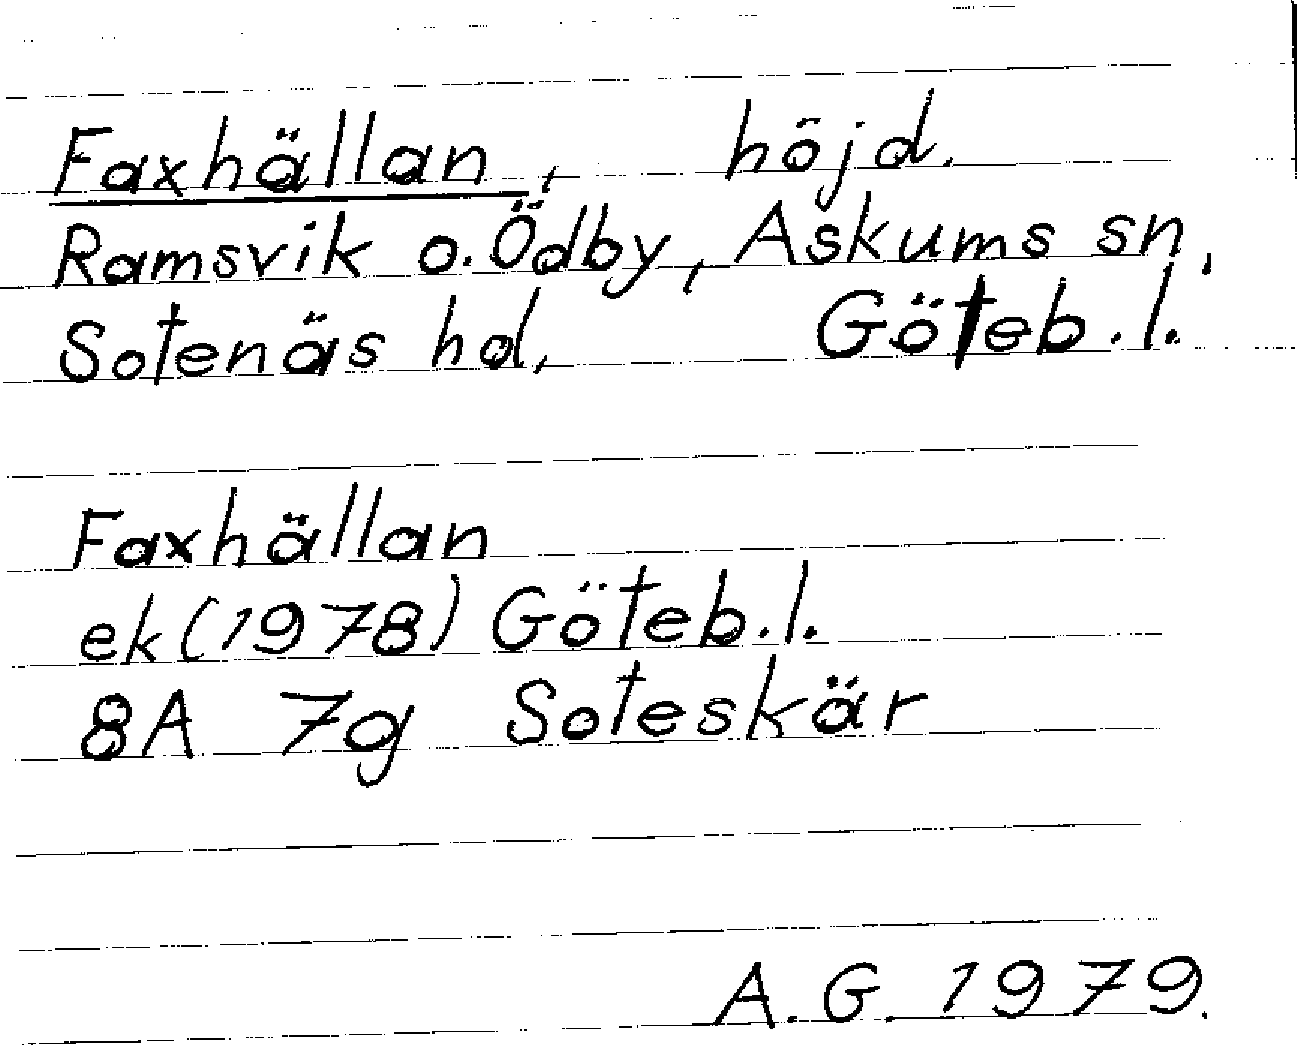 Faxhällan, höjd.
Ramsvik o. Ödby, Askums sn,
Sotenäs hd, Göteb. l.
Faxhällan
ek (1978) Göteb. l.
8A 7g Soteskär
A. G. 1979.